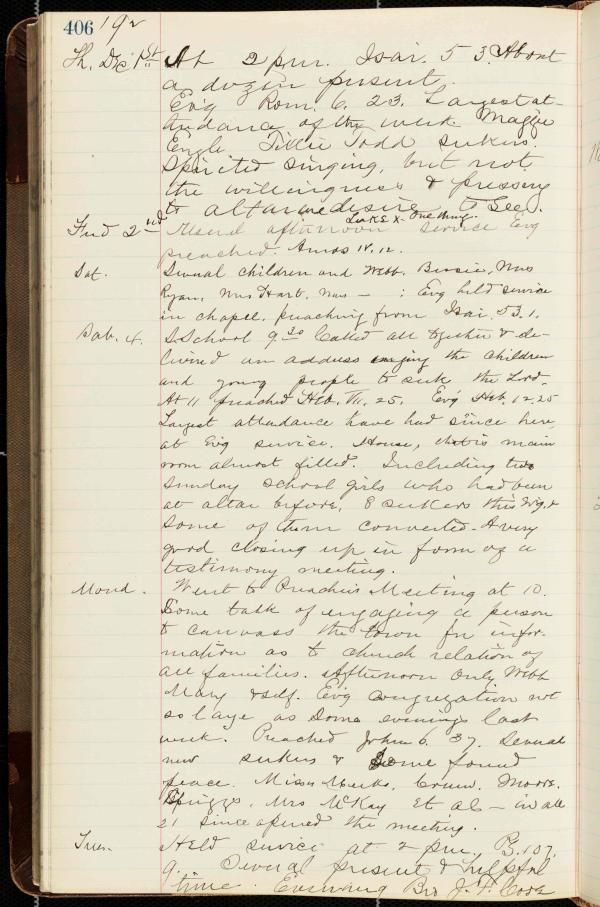 406 192
Th. Dec 1st At 2 pm. Isai. 53. About
a dozen present.
Ev'g Rom. 6. 23. Largest at-
tendance of the week. Maggie
Engle Tillie Todd seekers.
Spirited singing, but not
the willingness & pressing
to altar we desire to see.
Luke X- One thing.
Frid 2nd Usual afternoon service Evg
preached. Amos IV. 12.
Sat. Several children and Webb, Bessie, Mrs
Ryan, Mrs Hart, Mrs — : Evg held service
in chapel. preaching from Isai. 53. 1.
Sab. 4. S. School 9.30 Called all together & de-
livered an address urging the children
and young people to seek the Lord.
At 11 preached Heb. VII. 25. Ev'g Heb. 12. 25
Largest attendance have had since here,
at Ev'g service. House, that is main
room almost filled. Including two
Sunday school girls who had been
at altar before, 8 seekers this Evg. &
some of them converted. A very
good closing up in form of a
testimony meeting.
Mond. Went to Preachers Meeting at 10.
Some talk of engaging a person
to canvass the town for infor-
mation as to church relation of
all families. Afternoon only Webb
Mary & self. Ev'g congregation not
so large as some evenings last
week. Preached John 6. 37. Several
new seekers & some found
peace. Misses Meeks, Moore,
Spriggs, Mrs McKay et al — in all
21 since opened the meeting.
Tues. Held service at 2 pm. Ps. 107.
9. Several present & helpful
time. Evening Bro J. F. Cook